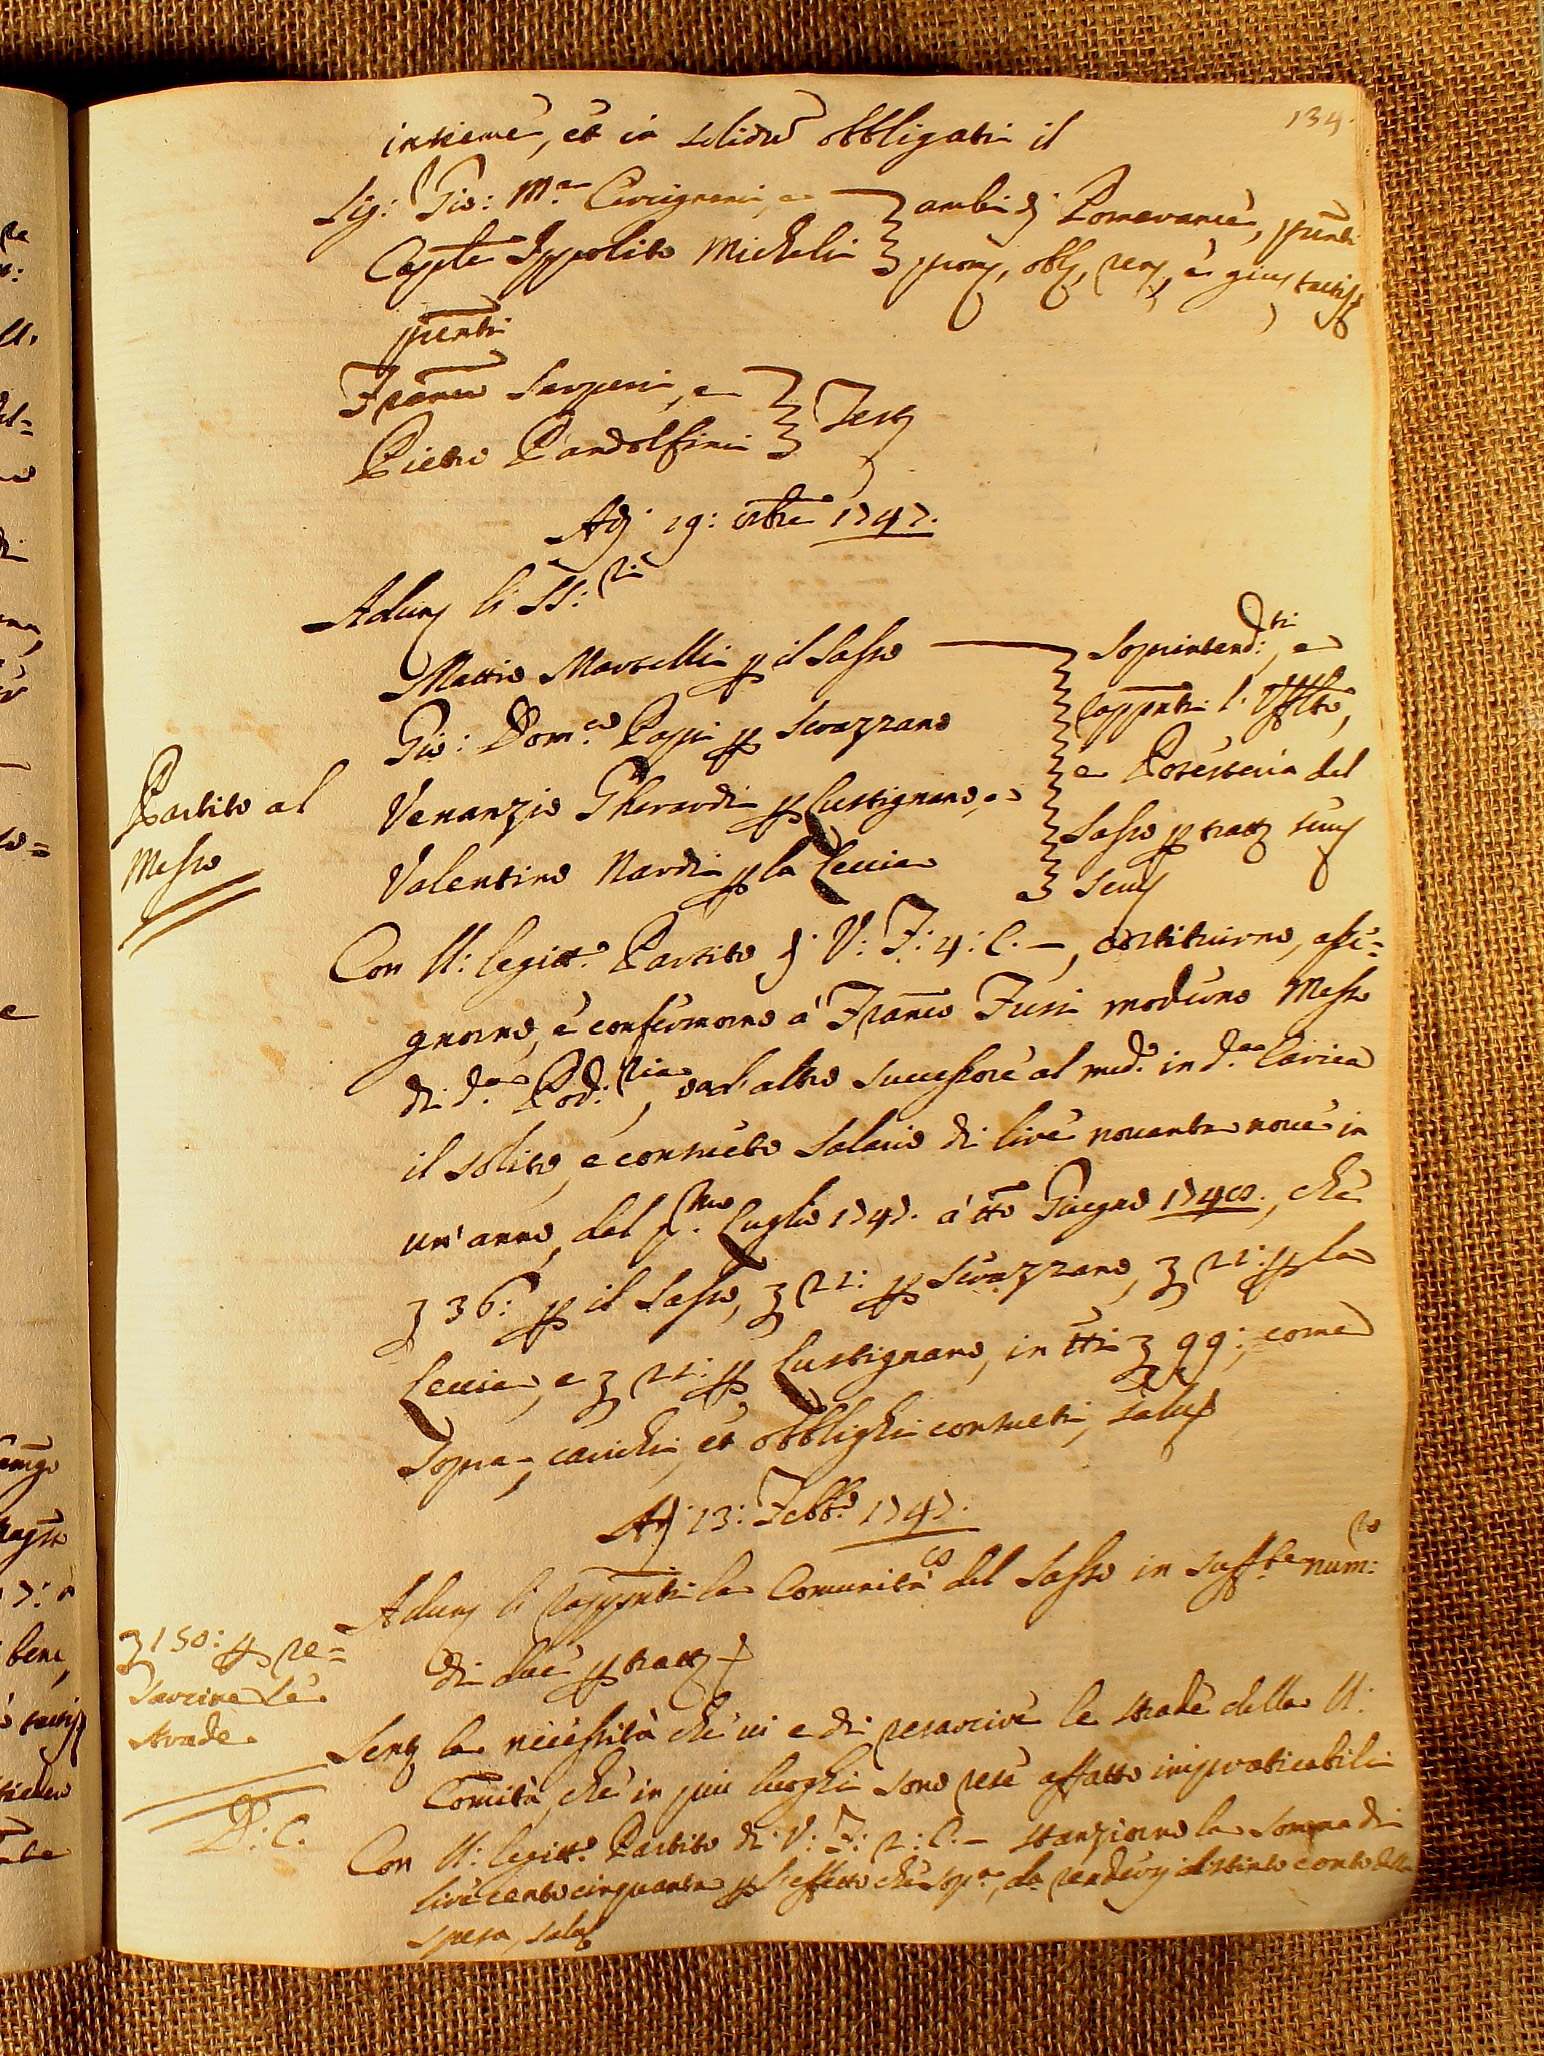 134.
insieme, et in solidũ obbligati il
Sig: Gio: M.ª Cercignani, e
Cap̃te Ippolito Micheli
ambi di Pomarance, p̃nti
p̃nti
Franc̃o Serperi, e
Pietro Pandolfini
Test
Adj 19: ottr̃e 1747.
Adun li SS:ri
Mattio Martelli p il Sasso
Gio: Dom.co Papi p Serazzano
Venanzio Gherardi p Lustignano, e
Valentino Nardi p la Leccia
Soprintend:ti, e
Rapp̃nti l'Uffitio,
e Potesteria del
Sasso p tratt
Partito al
Messo
Con U: legitt.º Partito dj V: F: 4: C. —, costituirno, asse=
gnorno, e confermorno à Franc̃o Fusi moderno Messo
di d.ª Pod:ria, ed altro successore al med.º in d.ª Carica
il solito, e consueto Salario di lire novantanove in
un' anno, dal p.mo Luglio 1747. à tt̃o Giugno 1748., che
ʒ 36: p il Sasso, ʒ 21: p Serazzano, ʒ 21: p la
Leccia, e ʒ 21: p Lustignano, in tt̃i ʒ 99:, come
Sopra, carichi, et obblighi consueti, salvs
Adj 13: Febb.º 1747.
Adun li rapp̃nti la Comunità del Sasso in suff.te num:ro
di due p tratt
ʒ 150: p re=
sarcire le
strade.
Sent la necessità che vi e di resarcire le strade della U:
Com̃ità, che in più luoghi sono rese affatto impraticabili
D: C.
Con U: legitt.º Partito di V: F: 2: C. — stanziorno la somma di
lire centocinquanta p l'effetto che sop.ª, da rendersj distinto conto della
spesa, salvs